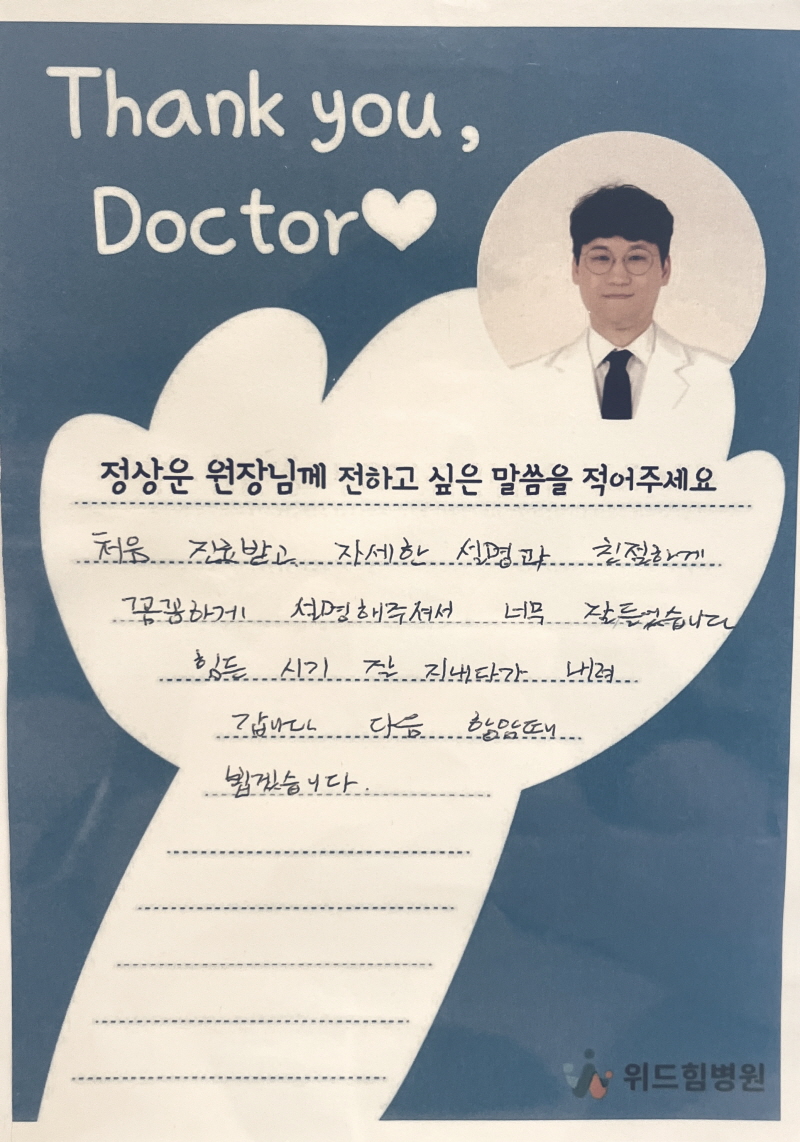 Thank you,
Doctor
정상운 원장님께 전하고 싶은 말씀을 적어주세요
처음 진료받고 자세한 설명과 친절하게
꼼꼼하게 설명해주져서 너무 잘들었습니다
힘든 시기 잘 지내다가 내려
갑니다 다음 항암때
뵙겠습니다.
위드힘병원